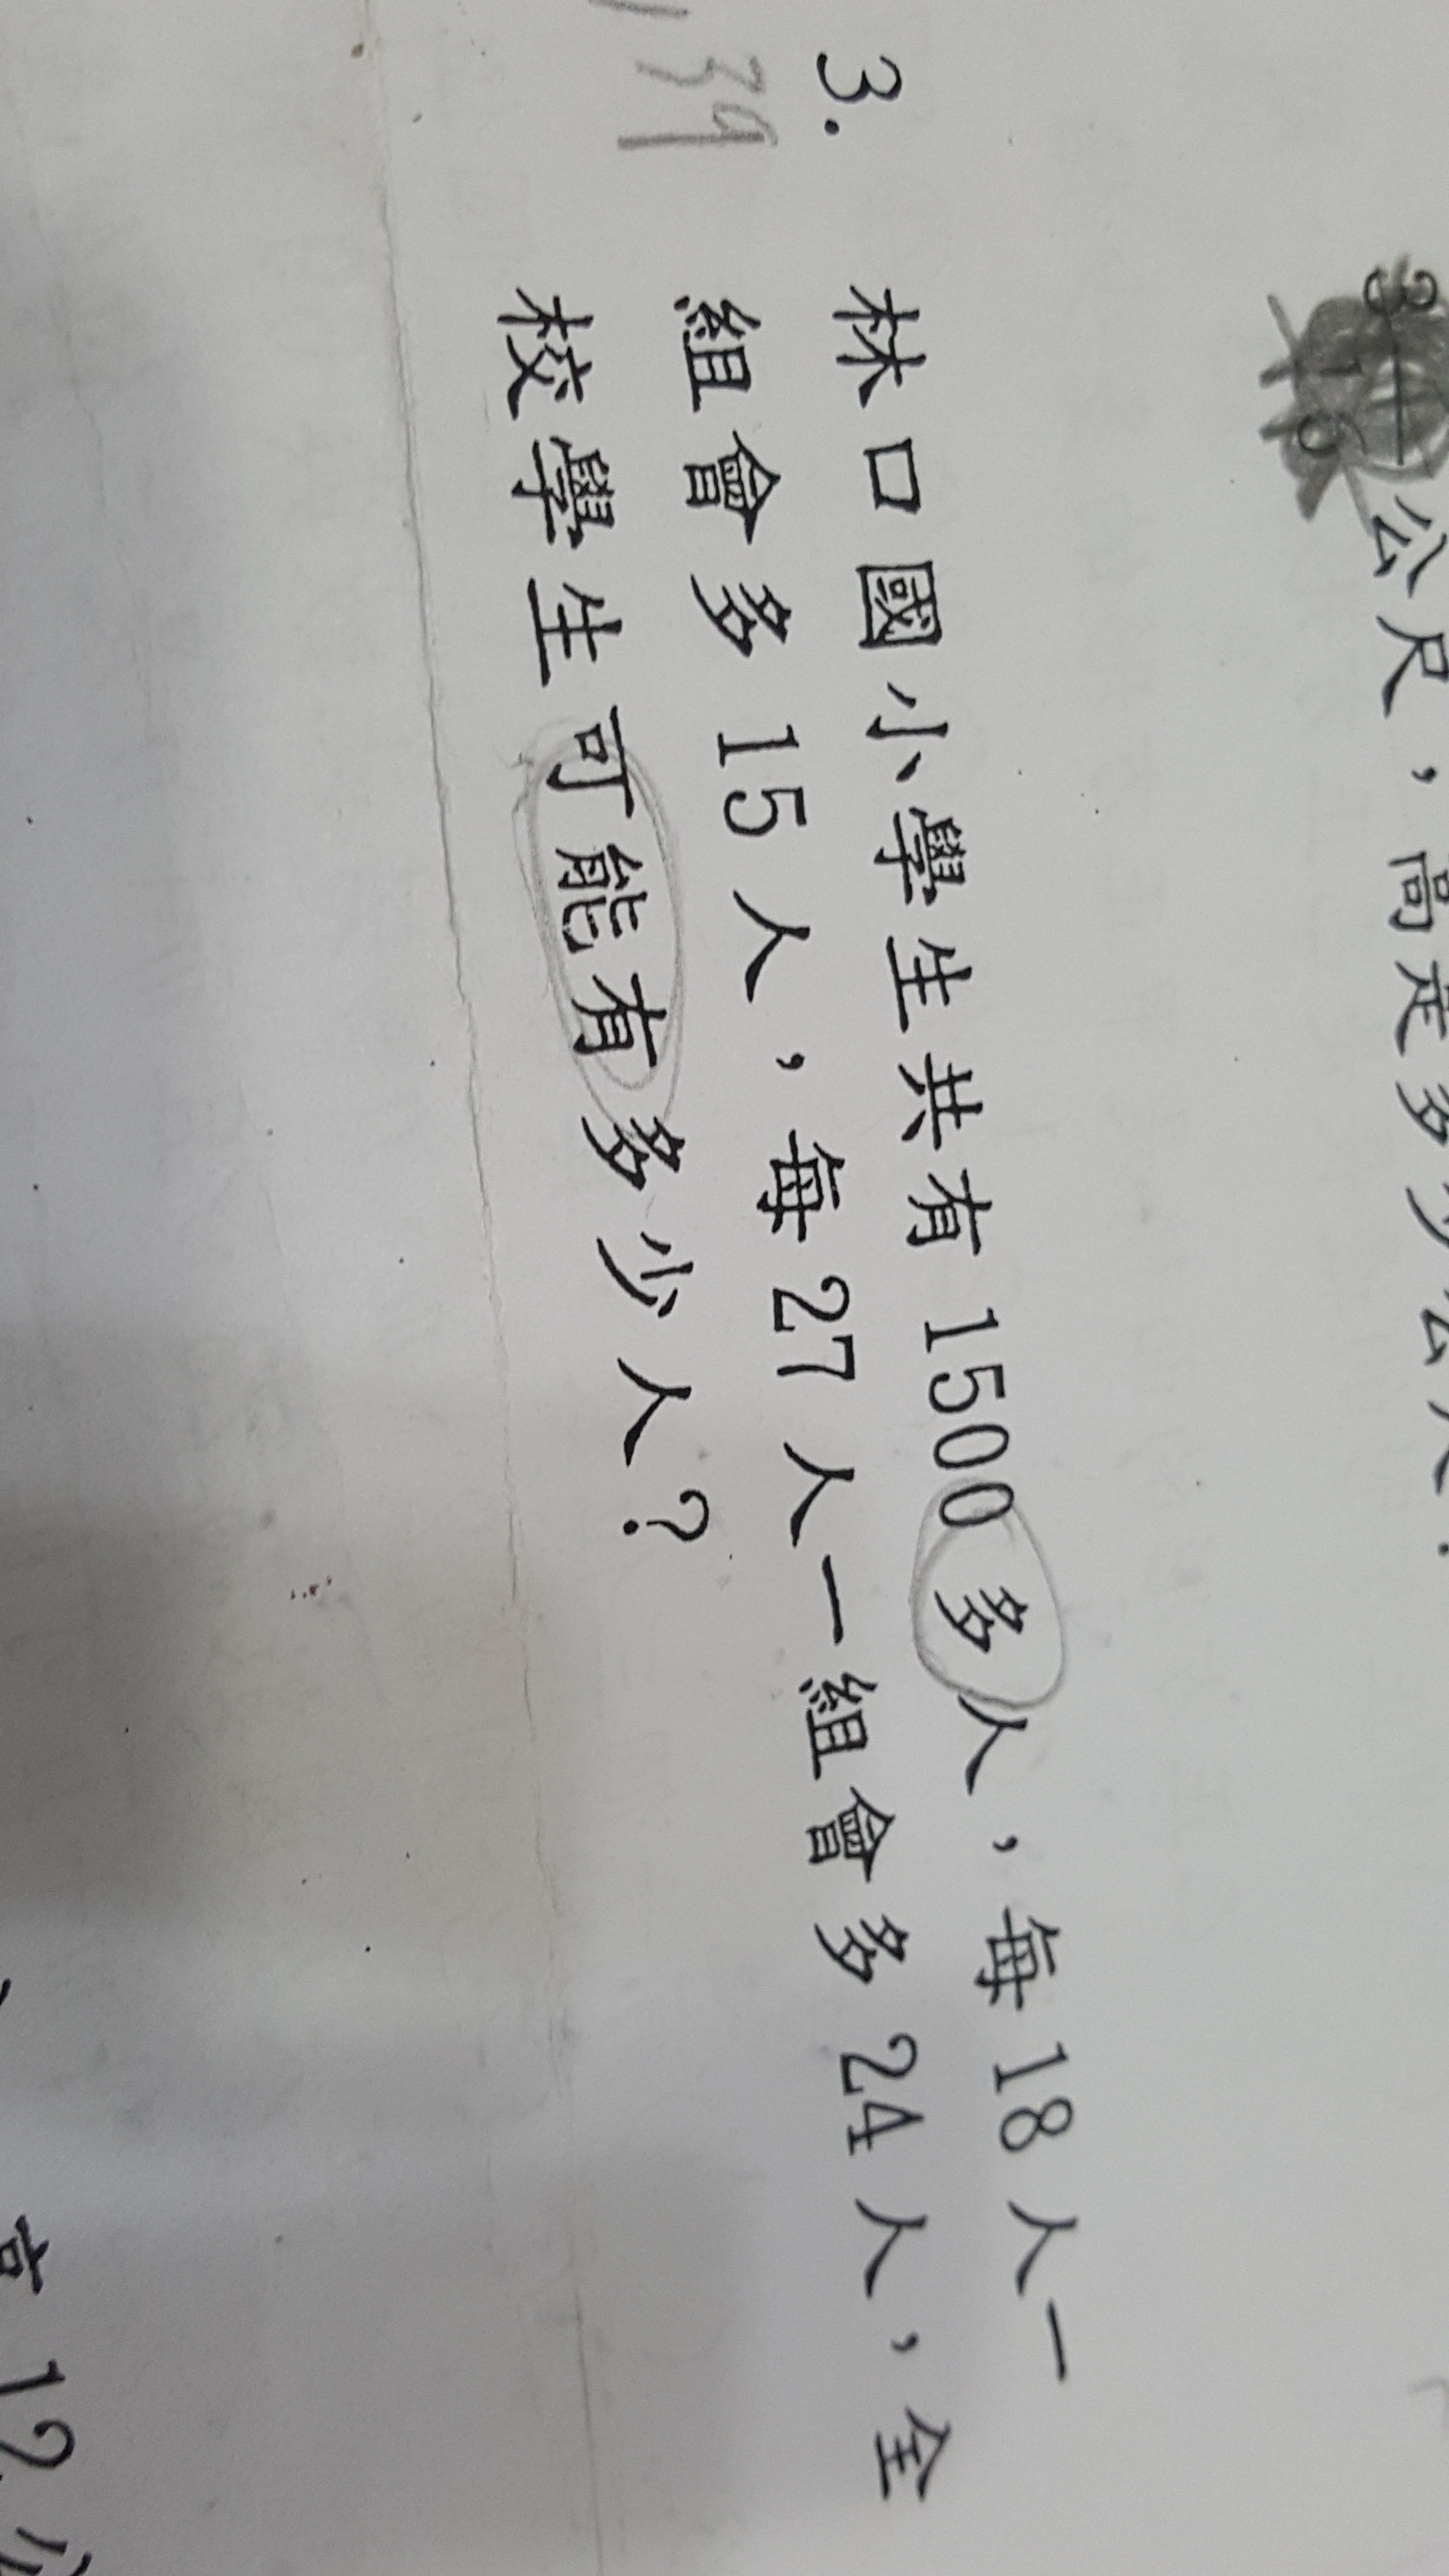 公尺，高是多少公尺？
3. 林口國小學生共有1500多人，每18人一
39
組會多15人，每27人一組會多24人，全
校學生可能有多少人？
高12公